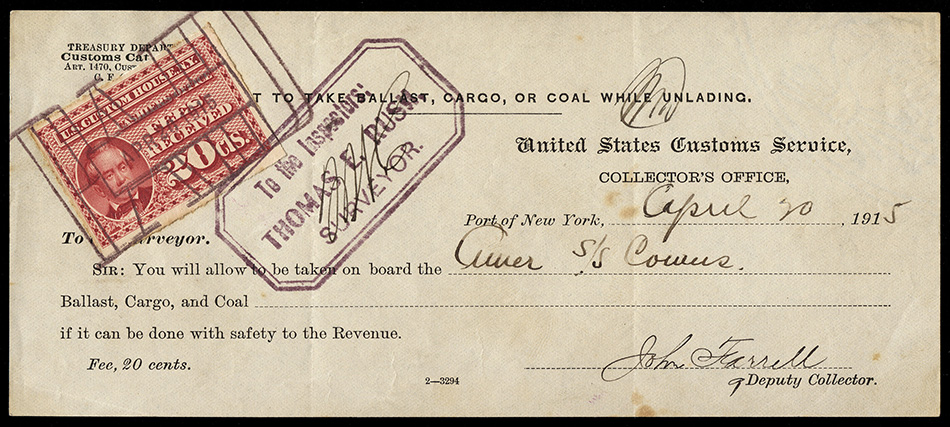 TREASURY DEPART
Customs Cat
ART. 1470, CUST
T TO TAKE BALLAST, CARGO, OR COAL WHILE UNLADING.
U.S. CUSTOM HOUSE, N.Y.
FEES
RECEIVED
20 CTS.
To the Inspectors:
THOMAS E. RUSH
SURVEYOR.
United States Customs Service,
COLLECTOR'S OFFICE,
Port of New York, April 20 1915
To Surveyor.
SIR: You will allow to be taken on board the Amer S/S Cowns.
Ballast, Cargo, and Coal
if it can be done with safety to the Revenue.
Fee, 20 cents.
John Farrell
2—3294
Deputy Collector.